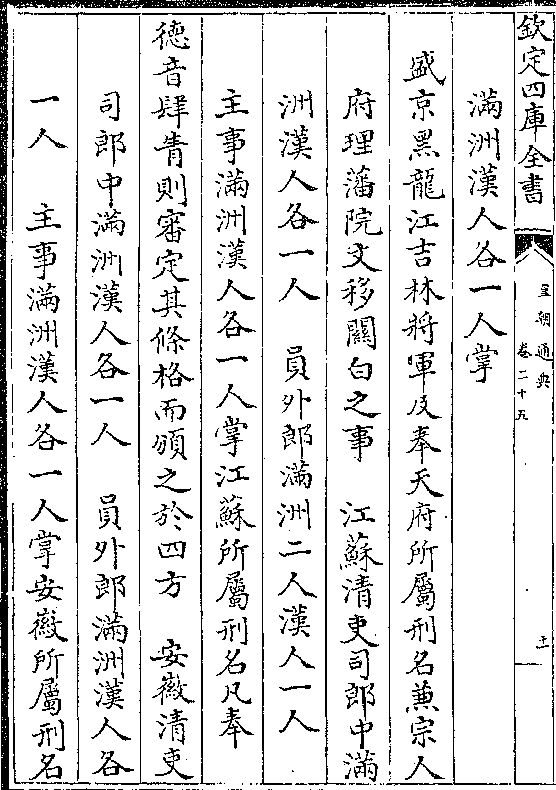 欽定四庫全書
皇朝通典
卷二十五
十
滿洲漢人各一人掌
盛京黑龍江吉林將軍及奉天府所屬刑名兼宗人
府理藩院文移關白之事　江蘇清吏司郎中滿
洲漢人各一人　員外郎滿洲二人漢人一人
主事滿洲漢人各一人掌江蘇所屬刑名凡奉
德音肆眚則審定其條格而頒之於四方　安徽清吏
司郎中滿洲漢人各一人　員外郎滿洲漢人各
一人　主事滿洲漢人各一人掌安徽所屬刑名